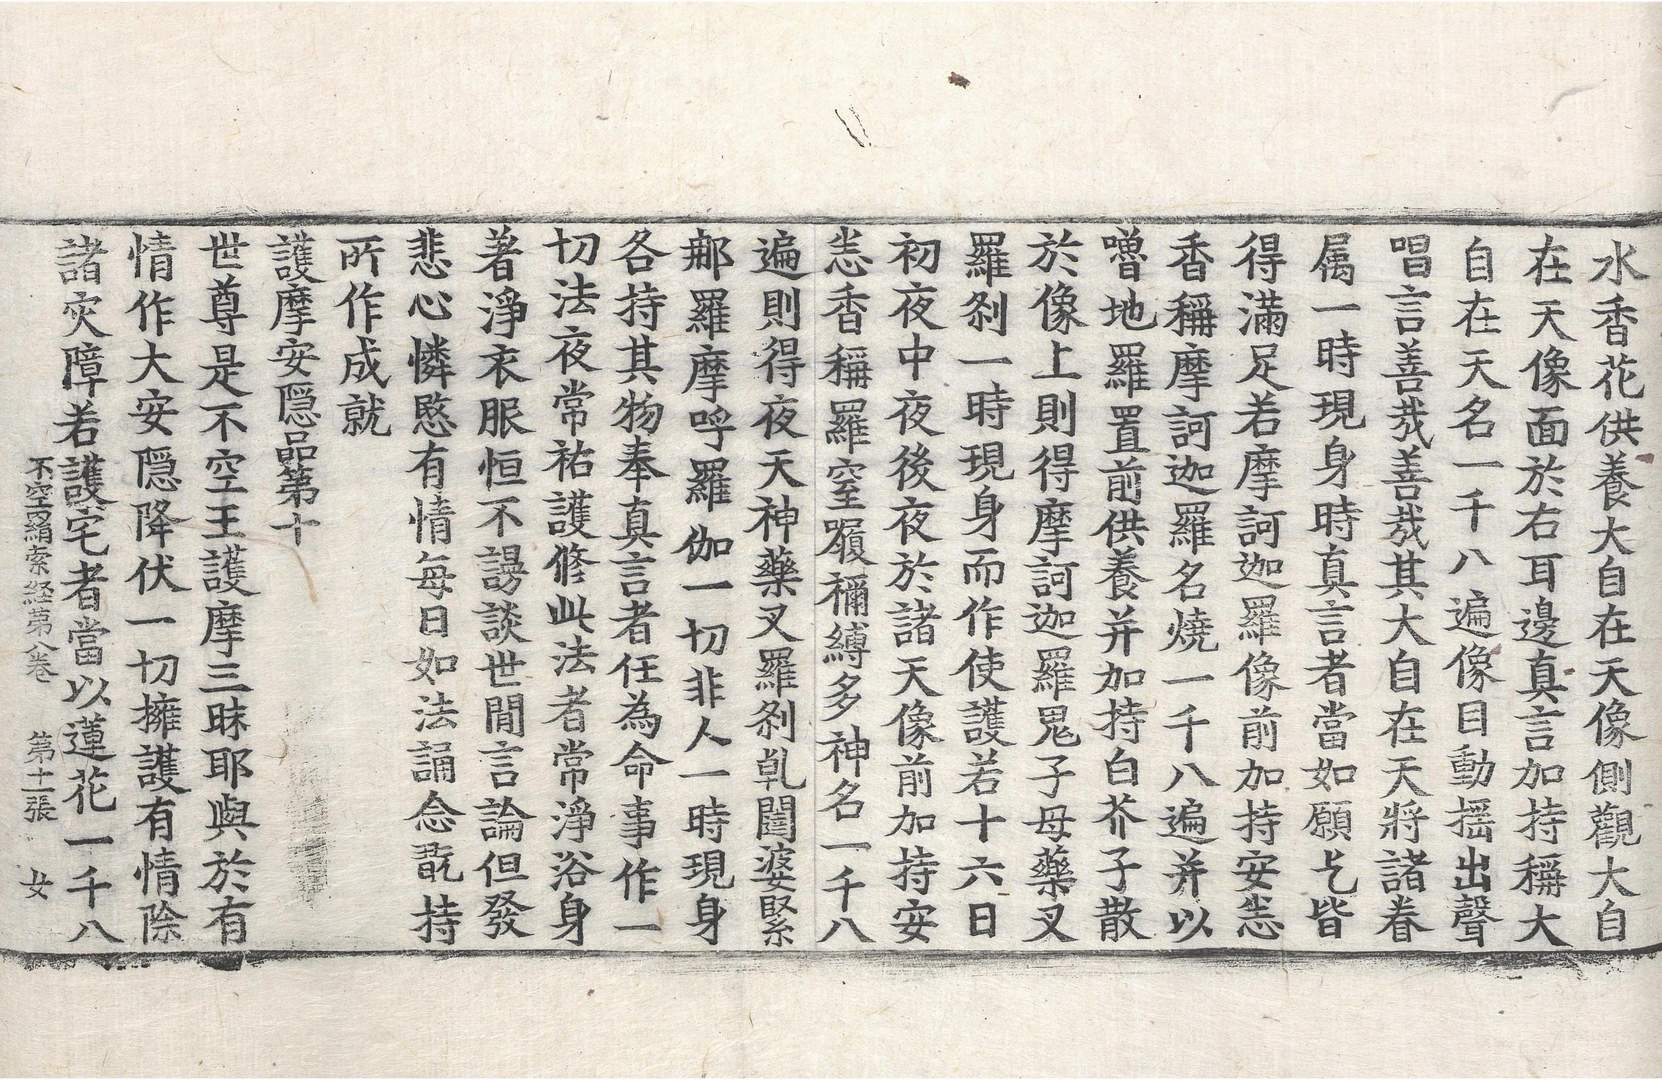 水香花供養大自在天像側觀大自
在天像面於右耳邊真言加持稱大
自在天名一千八遍像目動搖出聲
唱言善哉善哉其大自在天將諸眷
属一時現身時真言者當如願乞皆
得滿足若摩訶迦羅像前加持安悉
香稱摩訶迦羅名燒一千八遍并以
嚕地羅置前供養并加持白芥子散
於像上則得摩訶迦羅鬼子母藥叉
羅剎一時現身而作使護若十六日
初夜中夜後夜於諸天像前加持安
悉香稱羅窒𡳐禰縛多神名一千八
遍則得夜天神藥叉羅剎乹闥婆緊
那羅摩呼羅伽一切非人一時現身
各持其物奉真言者任為命事作一
切法夜常祐護修此法者常淨浴身
著淨衣服恒不謾談世閒言論但發
悲心憐愍有情每日如法誦念斯持
所作成就
護摩安隱品第十
世尊是不空王護摩三昧耶與於有
情作大安隱降伏一切擁護有情除
諸灾障若護宅者當以蓮花一千八
不空羂索経第八卷 第十一張 女